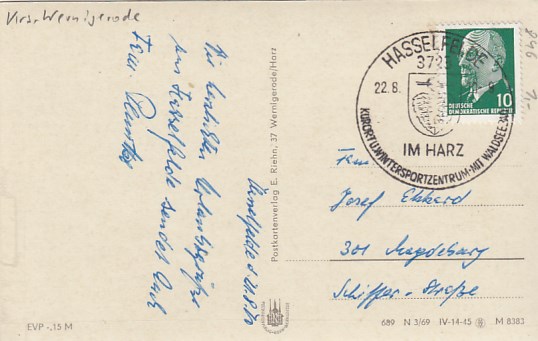 Krs. Wernigerode
HASSELFELDE
3725
22.8.
KURORT U. WINTERSPORTZENTRUM · MIT WALDSEEBAD
IM HARZ
DEUTSCHE
DEMOKRATISCHE REPUBLIK
10
Die herzlichsten Urlaubsgrüße
aus Hasselfelde sendet Euch
Frau
Hasselfelde d. 21.8.
Postkartenverlag E. Riehn, 37 Wernigerode/Harz
Fam
Josef Ekhard
301 Magdeburg
Schiffer-Straße
EVP -,15 M
689 N 3/69 IV-14-45 M 8383